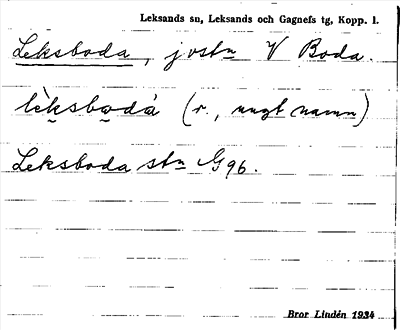 Leksands sn, Leksands och Gagnefs tg, Kopp. l.
Leksboda, jvstn V Boda.
lèksbodá (r., ungt namn)
Leksboda stn G 96.
Bror Lindén 1934